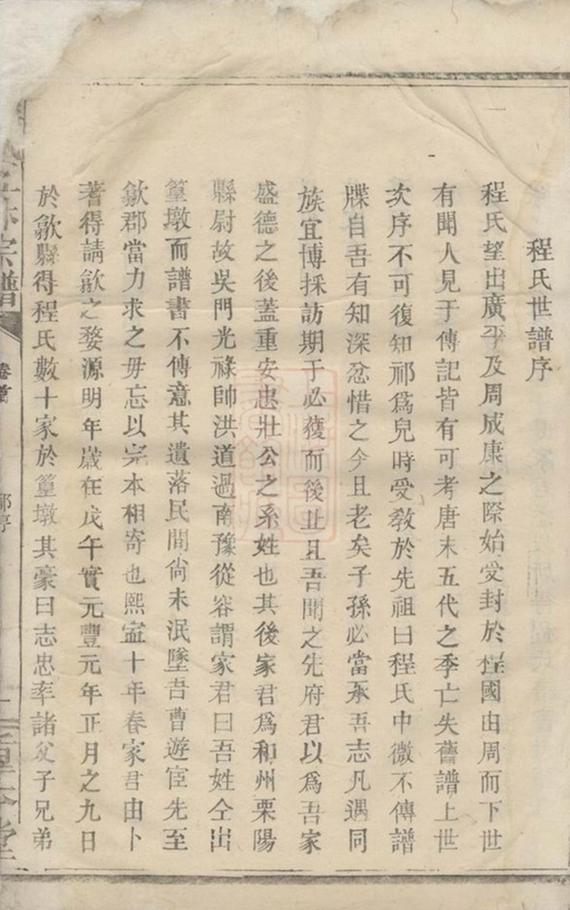 程氏世譜序
程氏望出廣平及周成康之際始受封於程國由周而下世
有聞人見于傳記皆有可考唐末五代之季亡失舊譜上世
次序不可復知祁爲兒時受敎於先祖曰程氏中微不傳譜
牒自吾有知深忿惜之今且老矣子孫必當承吾志凡遇同
族宜博採訪期于必獲而後止且吾聞之先府君以爲吾家
盛德之後蓋重安忠壯公之系姓也其後家君爲和州栗陽
縣尉故吳門光祿帥洪道過南豫從容謂家君曰吾姓仝出
篁墩而譜書不傳意其遺落民間尙未泯墜吾曹遊宦先至
歙郡當力求之毋忘以完本相寄也熙寧十年春家君由卜
著得請歙之婺源明年歲在戊午實元豐元年正月之九日
於歙縣得程氏數十家於篁墩其豪曰志忠率諸父子兄弟
宗譜
卷首